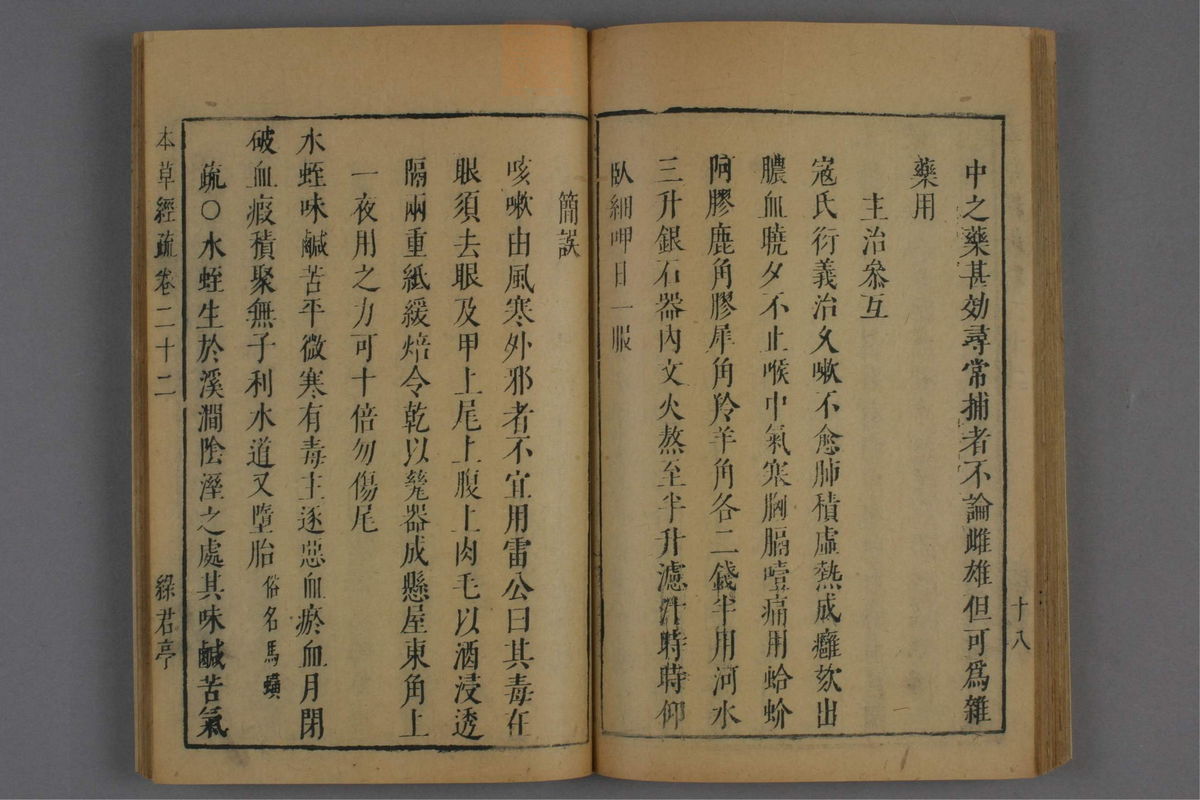 中之藥甚効尋常捕者不論雌雄但可爲雜
藥用
主治叅互
寇氏衍義治久嗽不愈肺積虛熱成癰欬出
膿血曉夕不止喉中氣寒胸膈噎痛用蛤蚧
阿膠鹿角膠犀角羚羊角各二錢半用河水
三升銀石器内文火熬至半升濾汁時時仰
臥細呷日一服
十八
簡誤
咳嗽由風寒外邪者不宜用雷公曰其毒在
眼須去眼及甲上尾上腹上肉毛以酒浸透
隔兩重紙緩焙令乾以甆器成懸屋東角上
一夜用之力可十倍勿傷尾
水蛭味鹹苦平微寒有毒主逐惡血瘀血月閉
破血瘕積聚無子利水道又墮胎俗名馬蟥
疏○水蛭生於溪澗陰溼之處其味鹹苦氣
本草經疏卷二十二
綠君亭